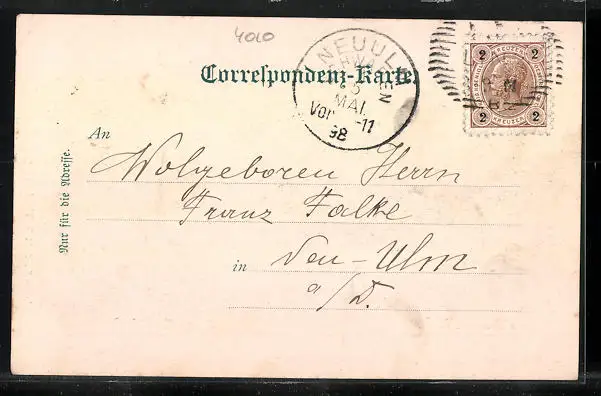 4010
NEUULM
SCHWABEN
5
MAI.
Vor -11
98
2 KREUZER 2
2 KREUZER 2
Correspondenz-Karte
An
Wolgeboren Herrn
Franz Falke
in Neu-Ulm
a/D.
Nur für die Adresse.